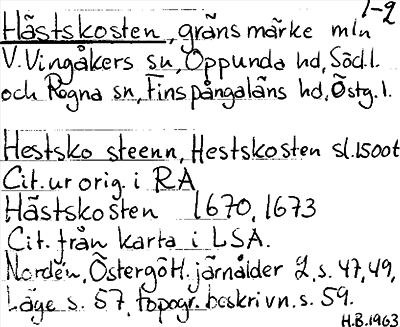 1-2
Hästskosten, gränsmärke mln
V. Vingåkers sn, Oppunda hd, Södl.
och Regna sn, Finspångaläns hd, Östg.l.
Hestsko steenn, Hestskosten sl.1500t
Cit. ur orig. i RA
Hästskosten 1670, 1673
Cit. från karta i LSA.
Nordén, Östergötl. järnålder 2, s. 47, 49,
Läge s. 57, topogr. beskrivn. s. 59.
H.B.1963